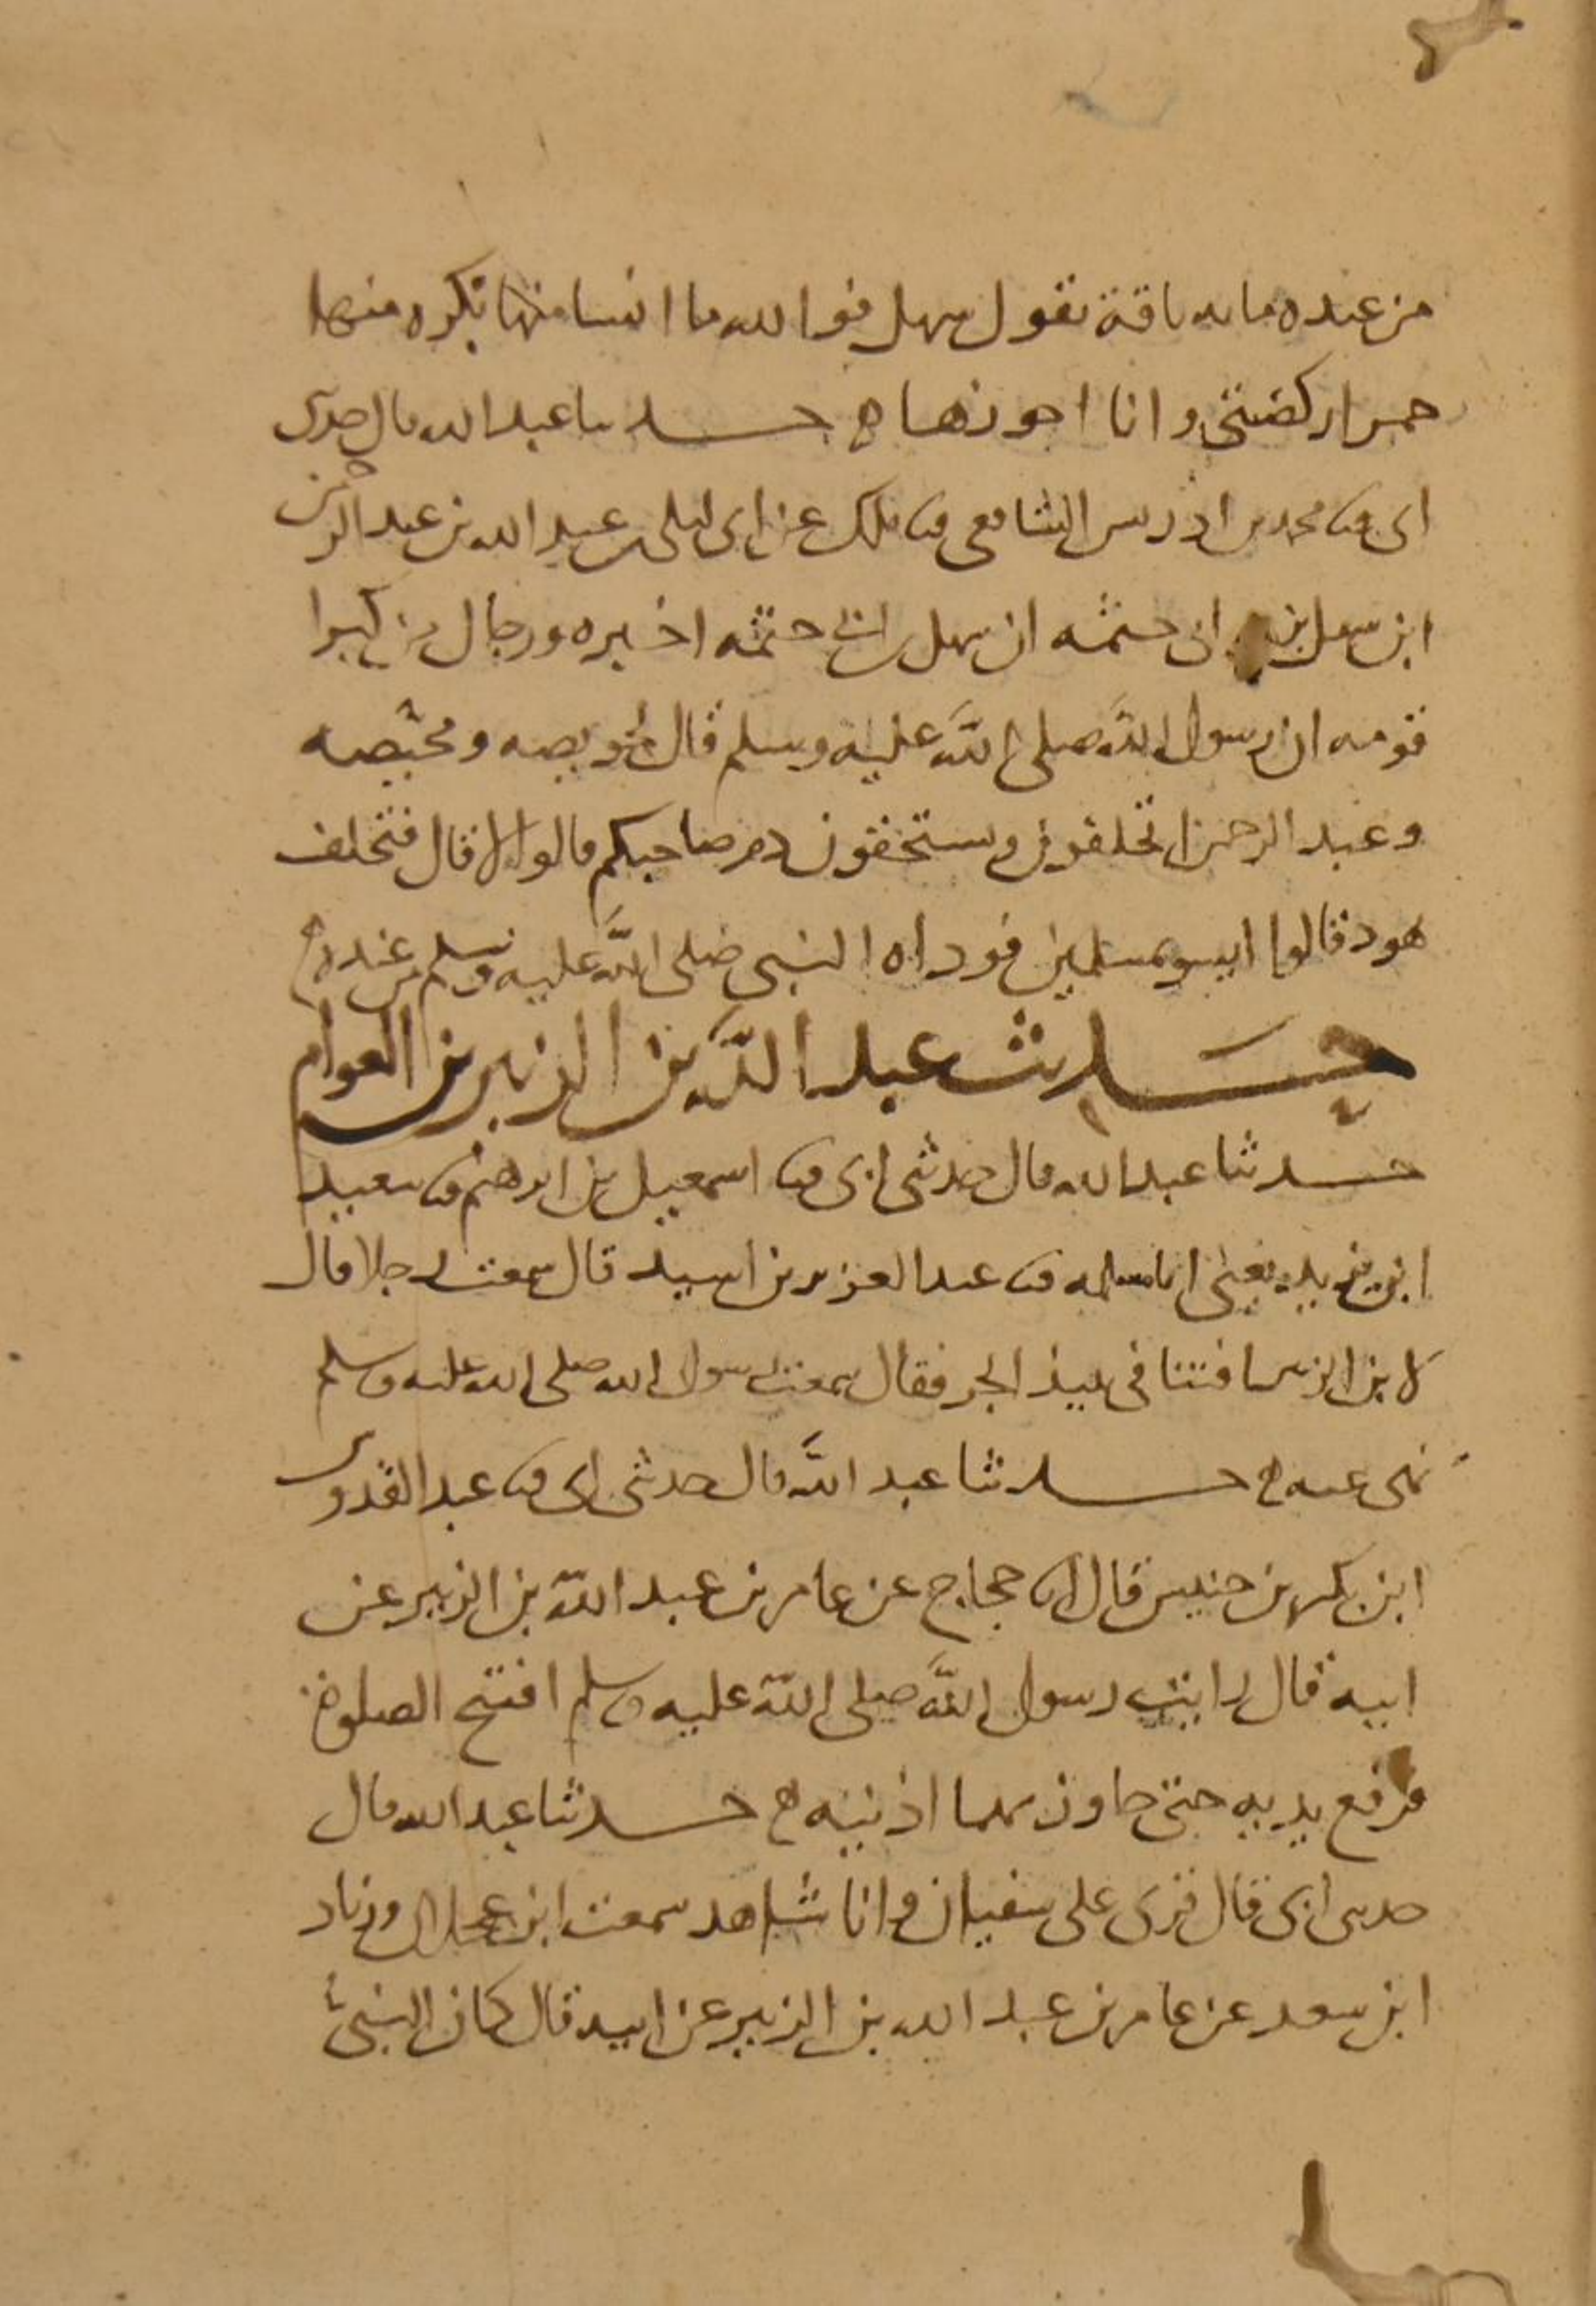 من عنده مايه ناقة يقول سهل فوالله ما انسا منها بكره منها
حمرا ركضتني وانا احوزها ه حدثنا عبد الله قال حدثني
ابي ثنا محمد بن ادريس الشافعي ثنا ملك عن ابي ليلى بن عبد الله بن عبد الرحمن
ابن سهل بن ابي حثمه ان سهل بن ابي حثمه اخبره ورجال من كبرا
قومه ان رسول الله صلى الله عليه وسلم قال لحويصه ومحيصه
وعبد الرحمن اتحلفون وتستحقون دم صاحبكم قالوا لا قال فتحلف
هود قالوا ليسو بمسلمين فوداه النبي صلى الله عليه وسلم من عنده ه
حديث عبد الله بن الزبير بن العوام
حدثنا عبد الله قال حدثني ابي ثنا اسمعيل بن ابرهيم ثنا سعيد
ابن يزيد يعني ابا مسلمه ثنا عبد العزيز بن اسيد قال سمعت رجلا قال
لابن الزبير افتنا في نبيذ الجر فقال سمعت رسول الله صلى الله عليه وسلم
نهى عنه ه حدثنا عبد الله قال حدثني ابي ثنا عبد القدوس
ابن بكر بن خنيس قال انا حجاج عن عامر بن عبد الله بن الزبير عن
ابيه قال رايت رسول الله صلى الله عليه وسلم افتتح الصلوة
فرفع يديه حتى جاوز بهما اذنيه ه حدثنا عبد الله قال
حدثني ابي قال قرى على سفيان وانا شاهد سمعت ابن عجلان وزياد
ابن سعد عن عامر بن عبد الله بن الزبير عن ابيه قال كان النبي